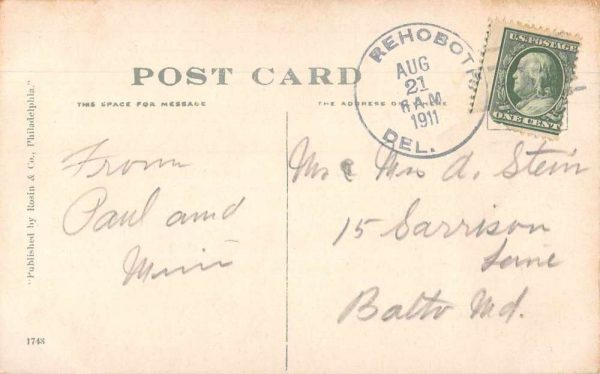 POST CARD
THIS SPACE FOR MESSAGE
THE ADDRESS
REHOBOT
AUG
21
6 A.M.
1911
DEL.
U.S. POSTAGE
ONE CENT
"Published by Rosin & Co., Philadelphia."
From
Paul and
Mimi
Mr & Mrs A. Stein
15 Garrison
Lane
Balto Md.
1748